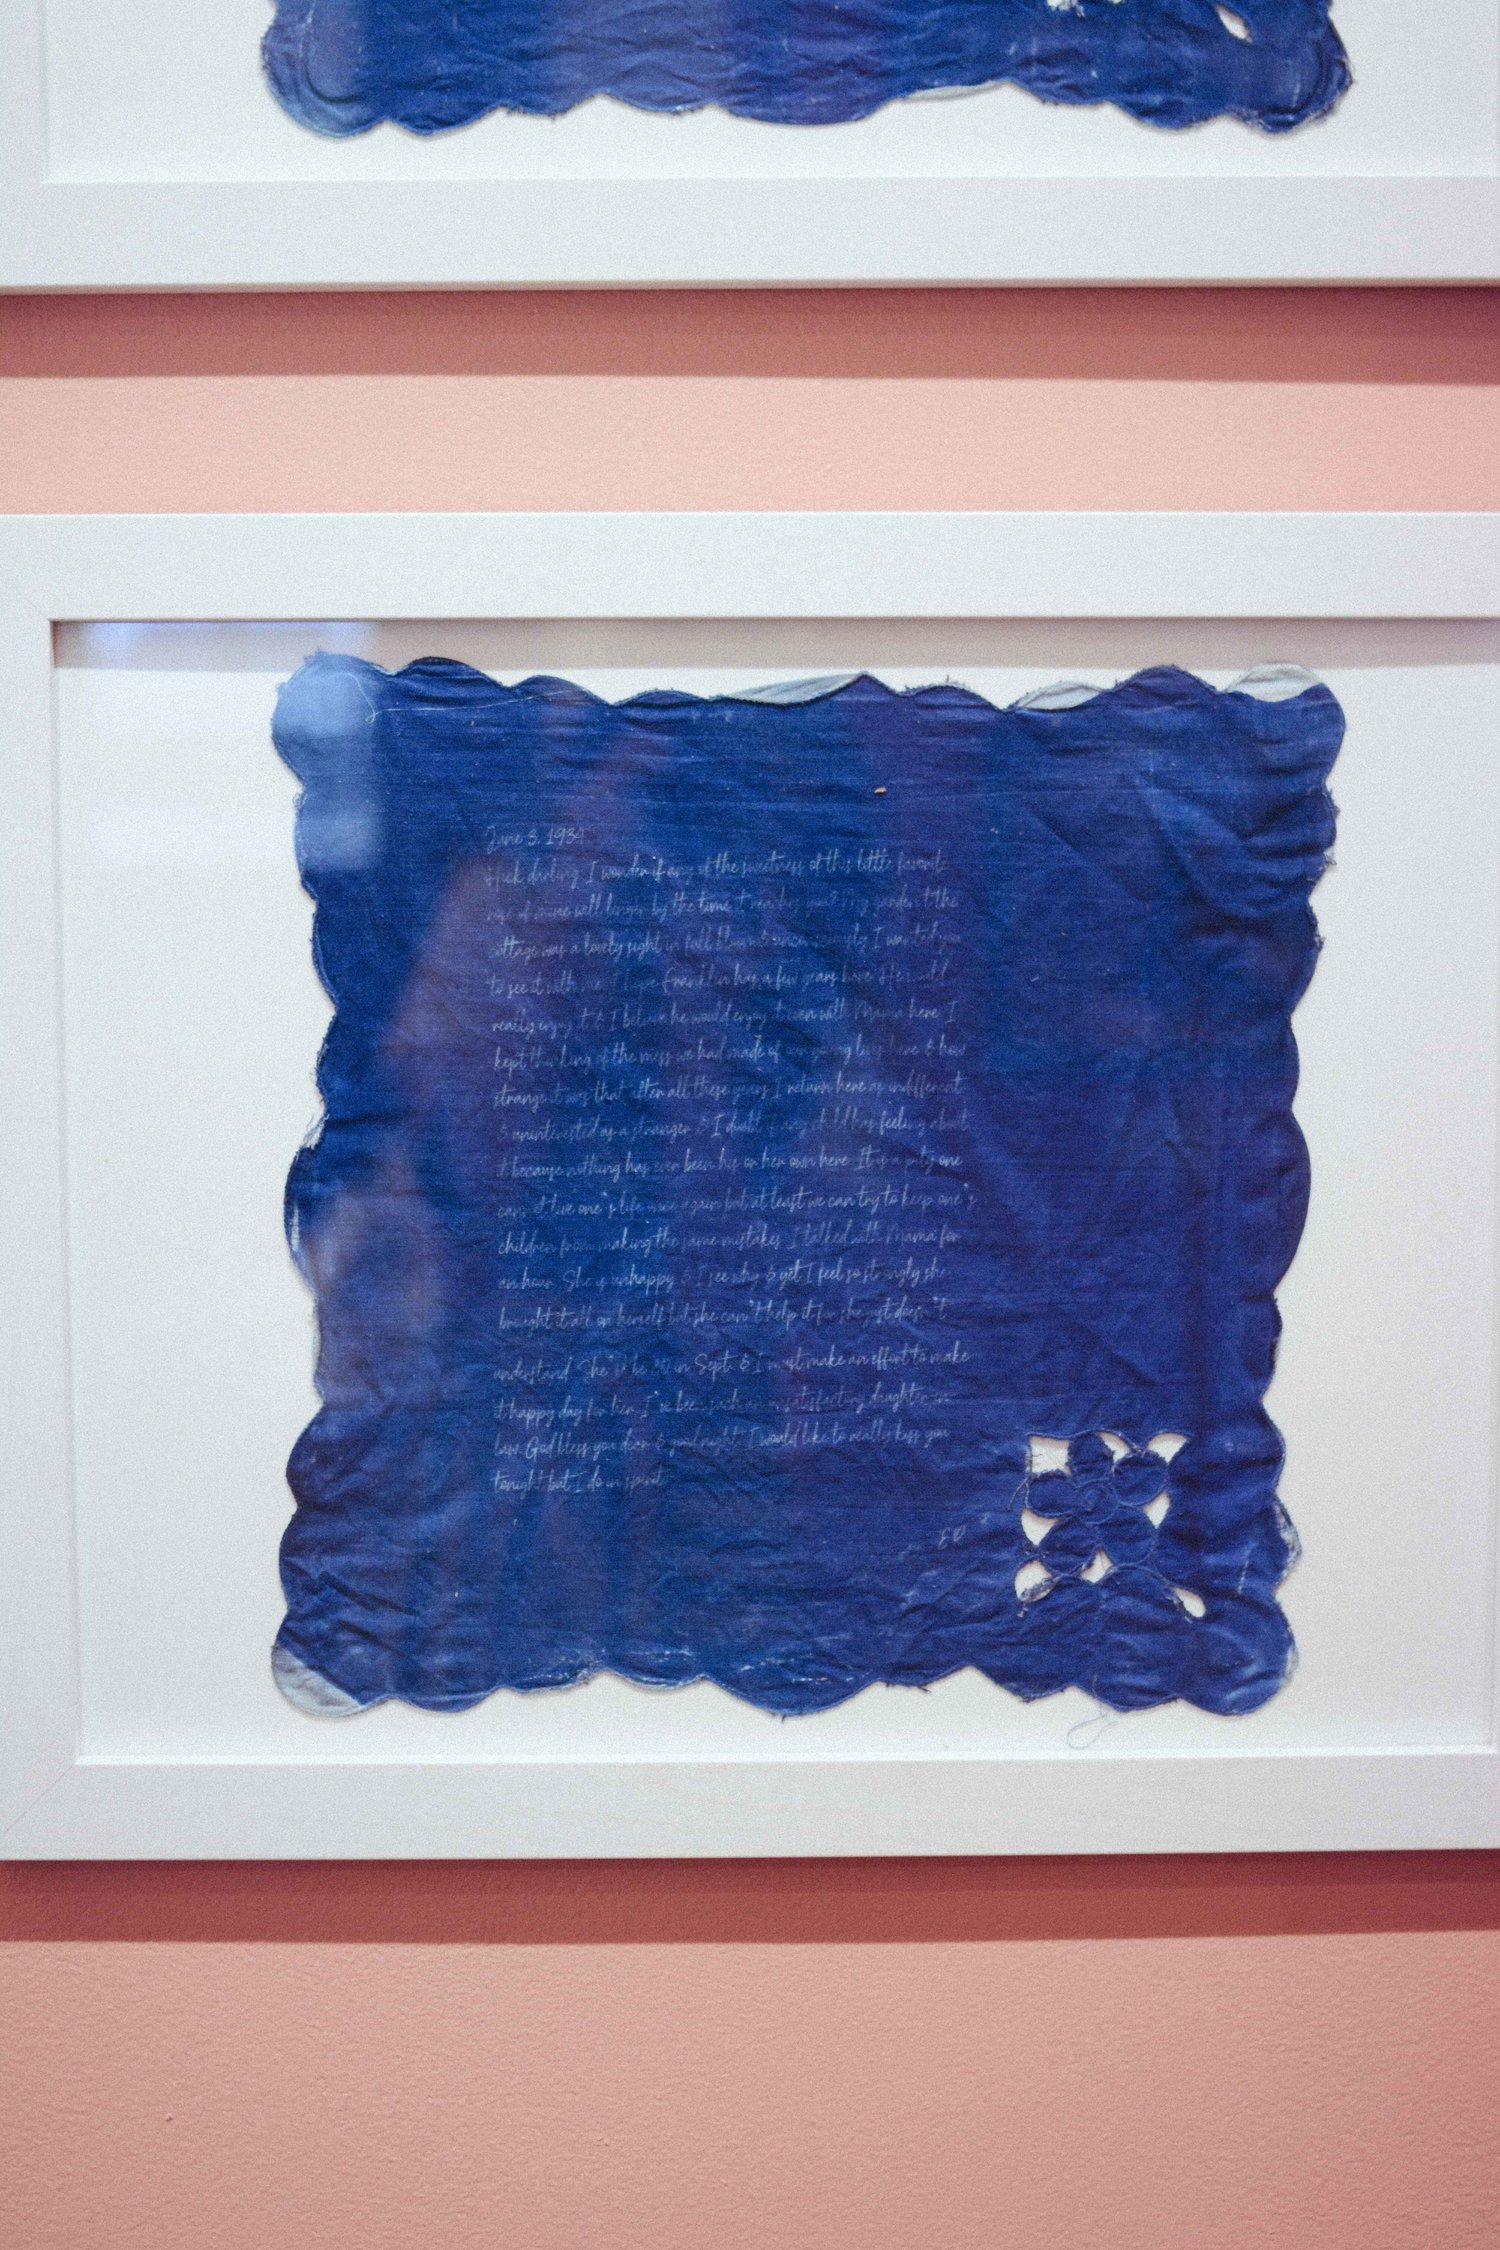 June 3, 1934
Hick darling, I wonder if any of the sweetness of this little favorite
rose of mine will linger by the time it reaches you? My garden at the
cottage was a lovely sight in full bloom & unceasingly I wanted you
to see it with me. I hope Franklin has a few years here. He will
really enjoy it & I believe he would enjoy it even with Mama here. I
kept thinking of the mess we had made of our young lives here & how
strange it was that after all these years I return here as indifferent
& uninterested as a stranger & I doubt if any child has feeling about
it because nothing has ever been his or her own here. It is a pity one
cannot live one's life over again but at least we can try to keep one's
children from making the same mistakes. I talked with Mama for
an hour. She is unhappy & I see why & yet I feel so strongly she
brought it all on herself but she can't help it for she just doesn't
understand. She'll be 80 in Sept. & I must make an effort to make
it happy day for her. I've been such an unsatisfactory daughter-in-
law. God bless you dear & good night. I would like to really kiss you
tonight but I do in spirit.